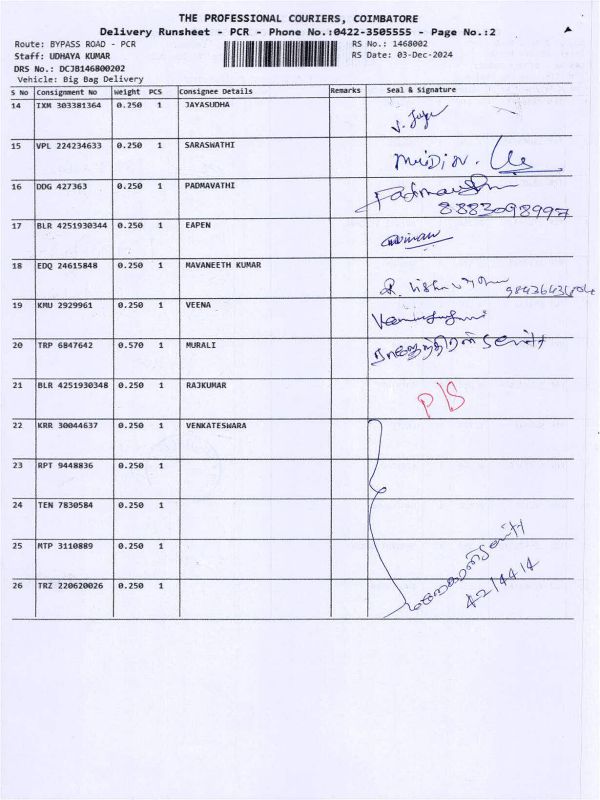 THE PROFESSIONAL COURIERS, COIMBATORE
Delivery Runsheet - PCR - Phone No.:0422-3505555 - Page No.:2
Route: BYPASS ROAD - PCR RS No.: 1468002
Staff: UDHAYA KUMAR RS Date: 03-Dec-2024
DRS No.: DCJB146800202
Vehicle: Big Bag Delivery
S No Consignment No Weight PCS Consignee Details Remarks Seal & Signature
14 IXM 303381364 0.250 1 JAYASUDHA
15 VPL 224234633 0.250 1 SARASWATHI
16 DDG 427363 0.250 1 PADMAVATHI
8883098997
17 BLR 4251930344 0.250 1 EAPEN
18 EDQ 24615848 0.250 1 MAVANEETH KUMAR
19 KMU 2929961 0.250 1 VEENA
20 TRP 6847642 0.570 1 MURALI
21 BLR 4251930348 0.250 1 RAJKUMAR P/S
22 KRR 30044637 0.250 1 VENKATESWARA
23 RPT 9448836 0.250 1
24 TEN 7830584 0.250 1
25 MTP 3110889 0.250 1
26 TRZ 220620026 0.250 1